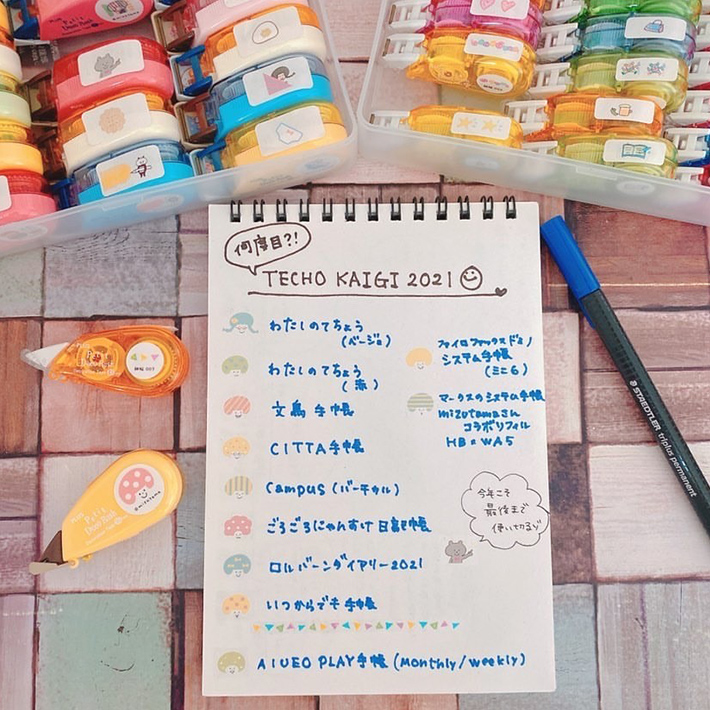 何度目?!
TECHO KAIGI 2021
わたしのてちょう
(ベージュ)
わたしのてちょう
(赤)
文鳥手帳
CITTA手帳
Campus (バーチカル)
ごろごろにゃんすけ日記帳
ロルバーンダイアリー2021
いつからでも手帳
AIUEO PLAY手帳 (Monthly/weekly)
ファイロファックスドミノ
システム手帳
(ミニ6)
マークスのシステム手帳
mizutamaさん
コラボリフィル
HB×WA5
今年こそ
最後まで
使い切るゾ
STAEDTLER triplus permanent
Petit
Deco Rush
PLUS
Petit
Deco Rush
mizutama